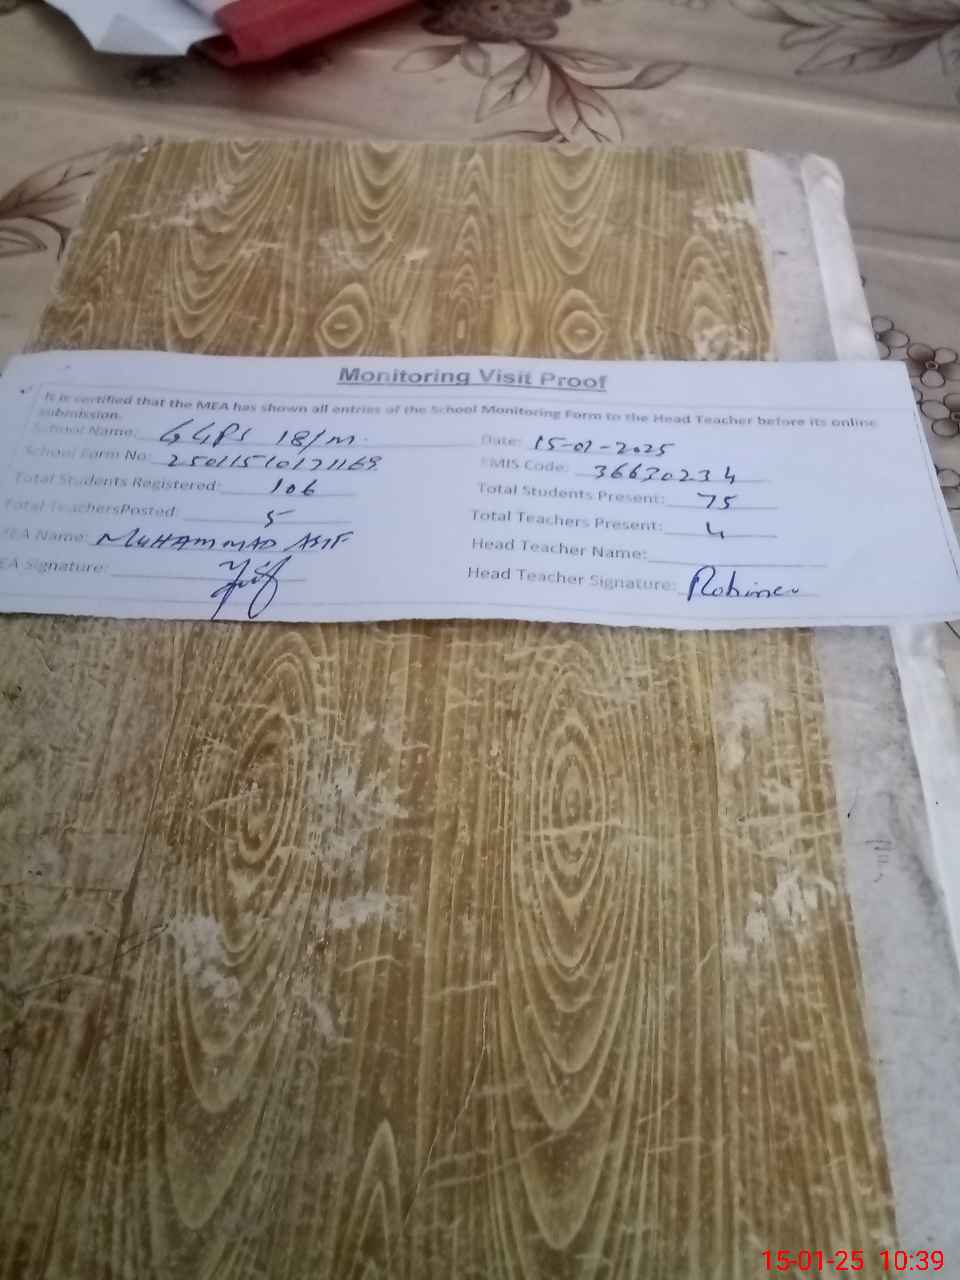 Monitoring Visit Proof
It is certified that the MEA has shown all entries of the School Monitoring Form to the Head Teacher before its online
submission.
School Name: GGPS 18/M. Date: 15-01-2025
School Form No: EMIS Code: 36630234
Total Students Registered: 106 Total Students Present: 75
Total TeachersPosted: 5 Total Teachers Present: 4
MEA Name: MUHAMMAD ASIF Head Teacher Name:
MEA Signature: Head Teacher Signature:
15-01-25 10:39